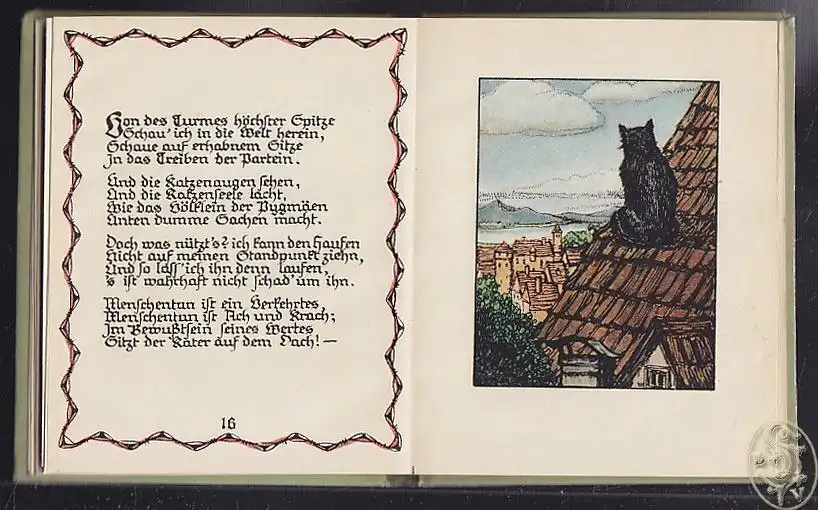 Von des Turmes höchster Spitze
Schau' ich in die Welt herein,
Schaue auf erhabnem Sitze
In das Treiben der Partein.
Und die Katzenaugen sehen,
Und die Katzenseele lacht,
Wie das Völklein der Pygmäen
Unten dumme Sachen macht.
Doch was nützt's? ich kann den Haufen
Nicht auf meinen Standpunkt ziehn,
Und so lass' ich ihn denn laufen,
's ist wahrhaft nicht schad' um ihn.
Menschentun ist ein Verkehrtes,
Menschentun ist Ach und Krach;
Im Bewußtsein seines Wertes
Sitzt der Kater auf dem Dach! —
16